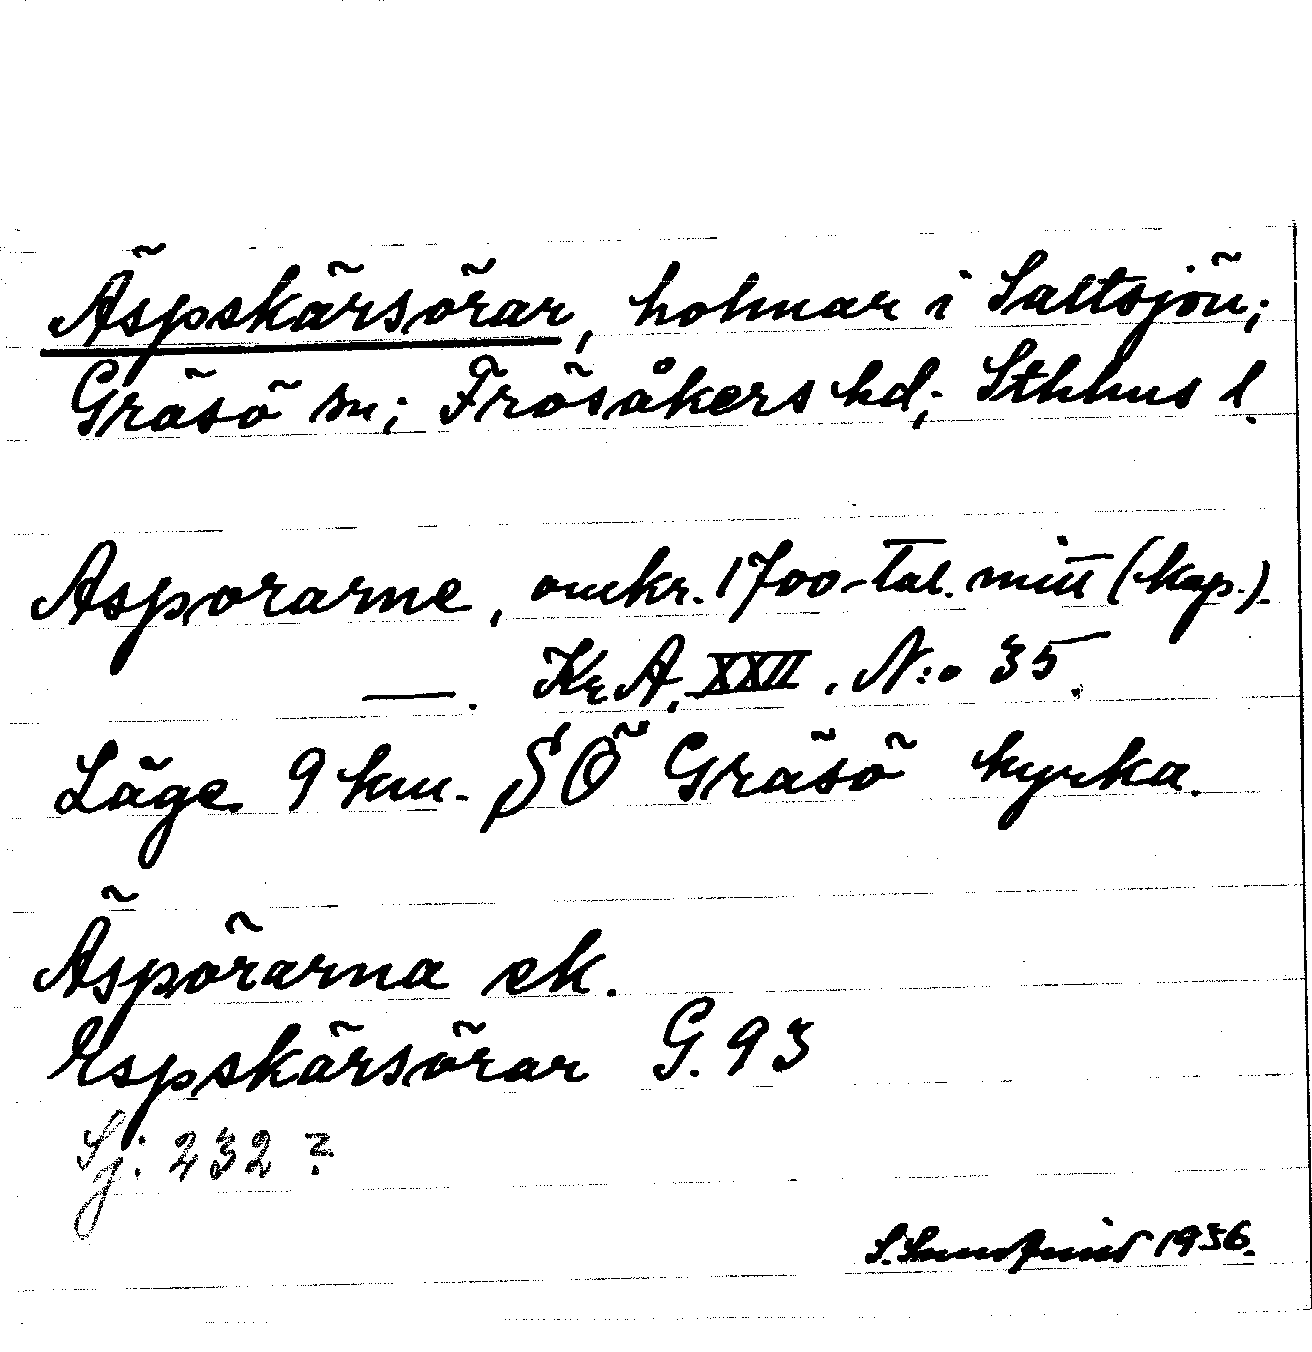 Äspskärsörar, holmar i Saltsjön;
Gräsö sn; Frösåkers hd; Sthlms l.
Asporarne, omkr. 1700-tal. mitt (kop.).
—. Kr.A. XXII. N:o 35.
Läge 9 km. SÖ Gräsö kyrka.
Äspörarna ek.
Espskärsörar G. 93
Sj: 232?
S. 1936.